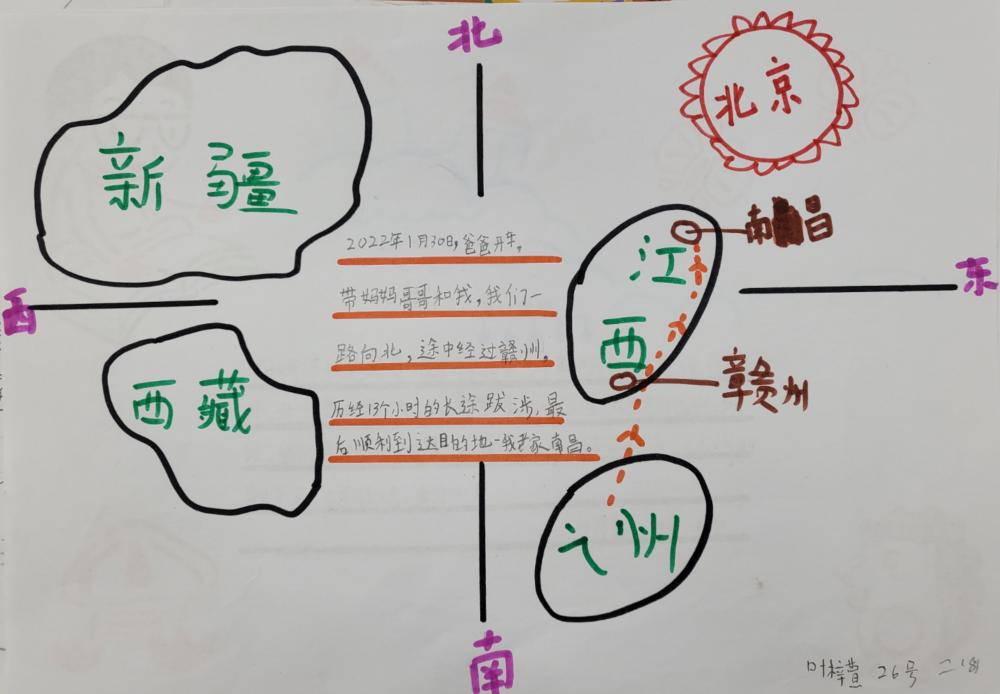 北
北京
新疆
南昌
2022年1月30日,爸爸开车,
江西
东
带妈妈哥哥和我,我们一
西
路向北,途中经过赣州。
赣州
西藏
历经13个小时的长途跋涉,最
后顺利到达目的地-我老家南昌。
州
南
26号